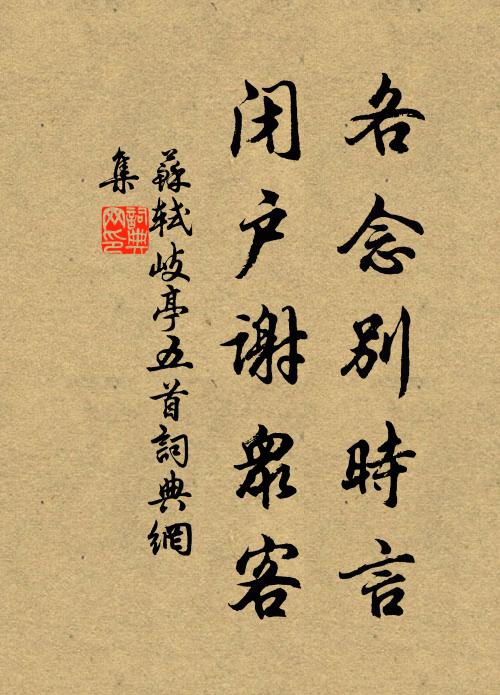 各念別時言
闭户谢眾客
蘇軾岐亭五首詞典網
集
詞典
网印